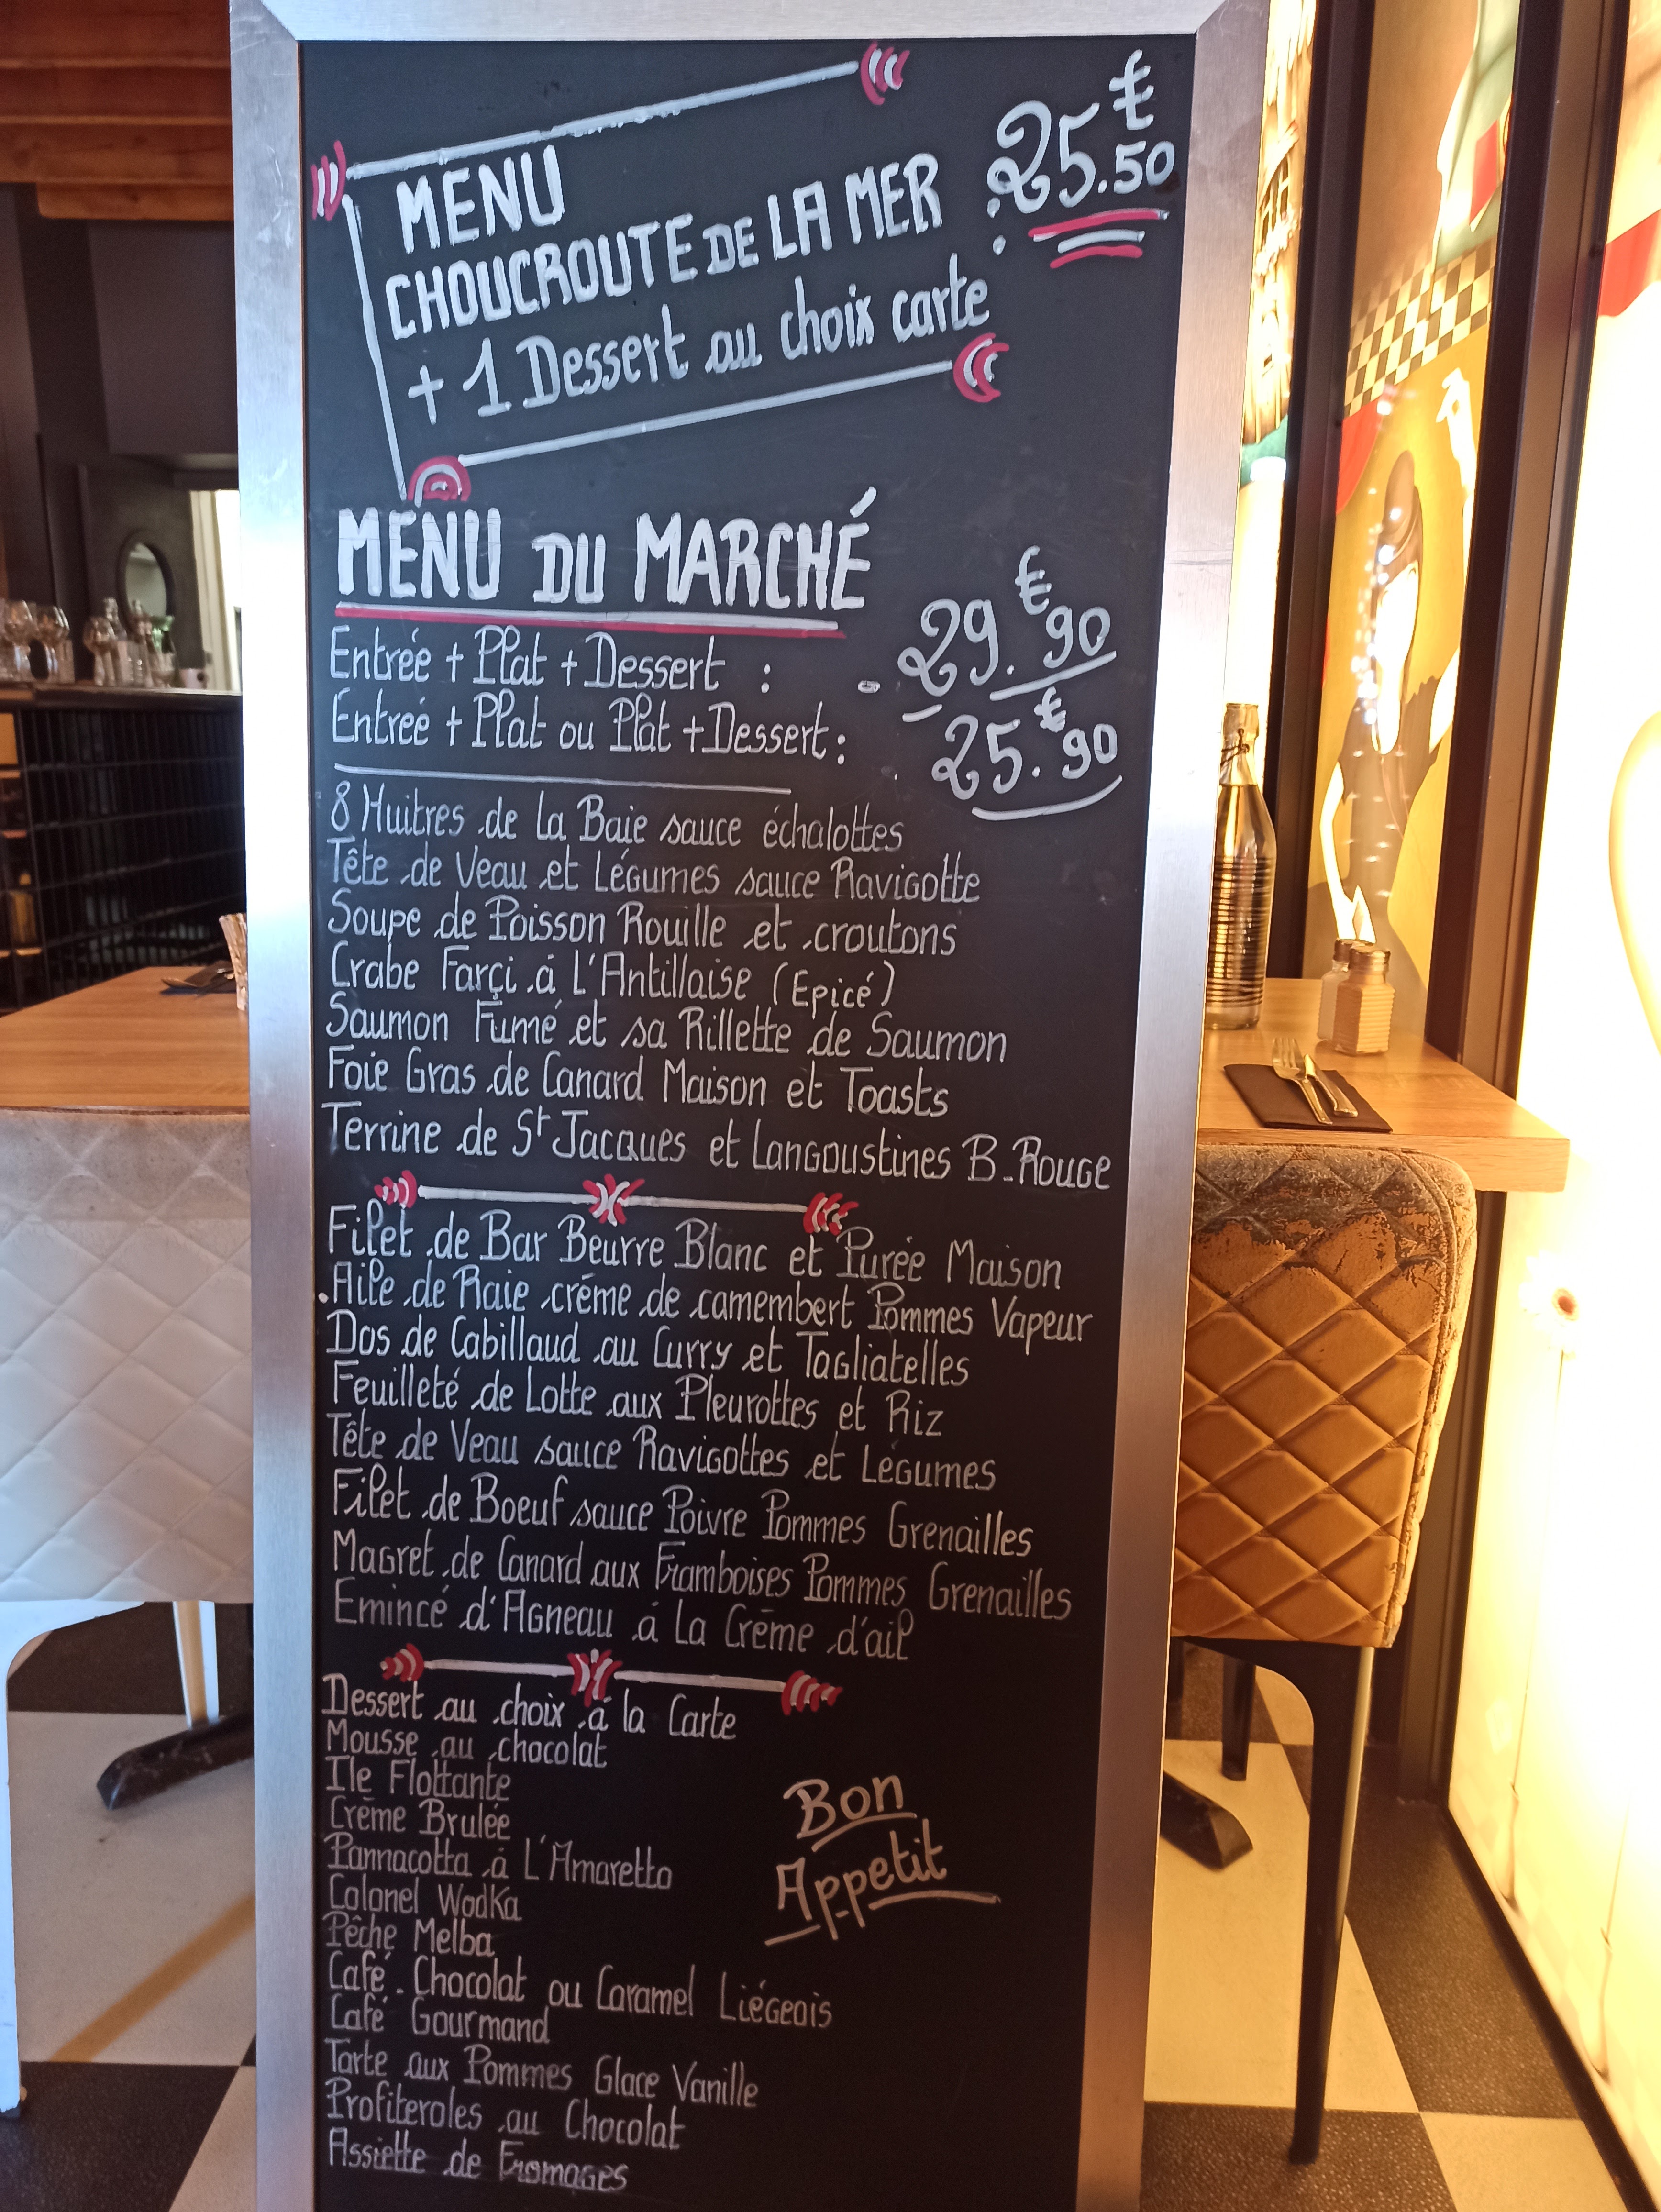 MENU
CHOUCROUTE DE LA MER : 25.€50
+ 1 Dessert au choix carte
MENU DU MARCHÉ
Entrée + Plat + Dessert : 29.€90
Entreé + Plat ou Plat + Dessert : 25.€90
8 Huitres de la Baie sauce échalottes
Tête de Veau et Légumes sauce Ravigotte
Soupe de Poisson Rouille et croutons
Crabe Farçi á L'Antillaise (Epicé)
Saumon Fumé et sa Rillette de Saumon
Foie Gras de Canard Maison et Toasts
Terrine de St Jacques et Langoustines B-Rouge
Filet de Bar Beurre Blanc et Purée Maison
Aile de Raie créme de camembert Pommes Vapeur
Dos de Cabillaud au Curry et Tagliatelles
Feuilleté de Lotte aux Pleurottes et Riz
Tête de Veau sauce Ravigottes et Légumes
Filet de Boeuf sauce Poivre Pommes Grenailles
Magret de Canard aux Framboises Pommes Grenailles
Emincé d'Agneau á La Crême d'ail
Dessert au choix á la Carte
Mousse au chocolat
Ile Flottante
Crême Brulée
Pannacotta á L'Amaretto
Colonel Wodka
Pêche Melba
Café. Chocolat ou Caramel Liégeois
Café Gourmand
Tarte aux Pommes Glace Vanille
Profiteroles au Chocolat
Assiette de Fromages
Bon
Appetit